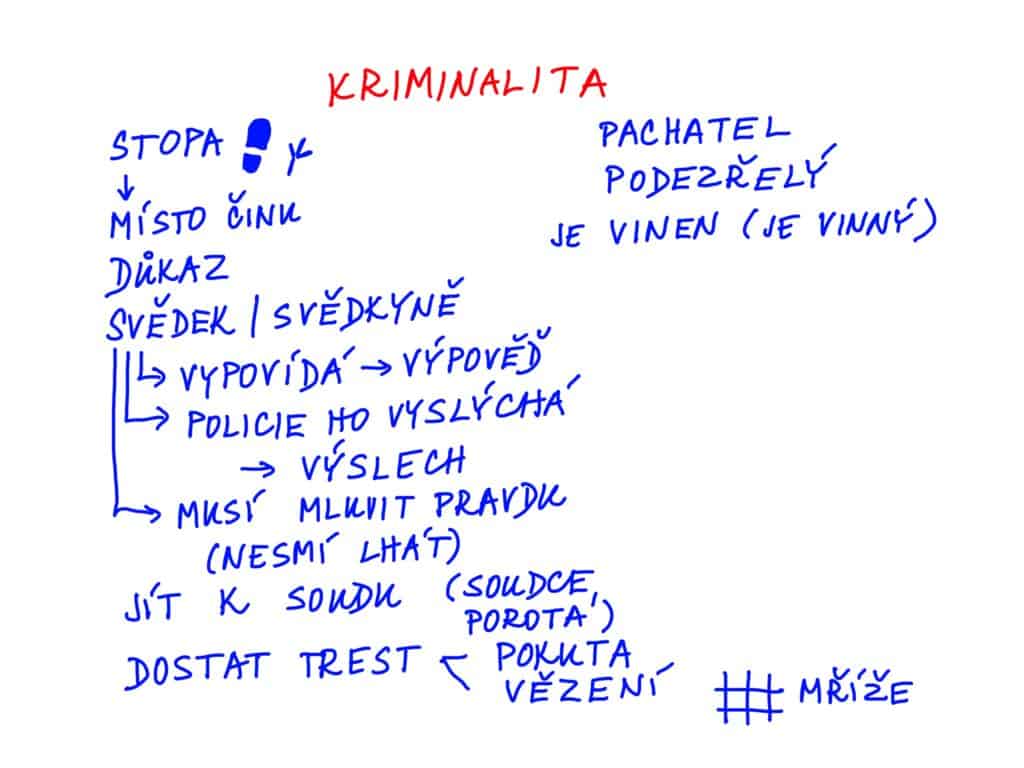 KRIMINALITA
STOPA
↓
MÍSTO ČINU
DŮKAZ
SVĚDEK / SVĚDKYNĚ
↳ VYPOVÍDÁ → VÝPOVĚĎ
↳ POLICIE HO VYSLÝCHÁ
→ VÝSLECH
↳ MUSÍ MLUVIT PRAVDU
(NESMÍ LHÁT)
JÍT K SOUDU (SOUDCE,
POROTA)
DOSTAT TREST < POKUTA
VĚZENÍ
MŘÍŽE
PACHATEL
PODEZŘELÝ
JE VINEN (JE VINNÝ)